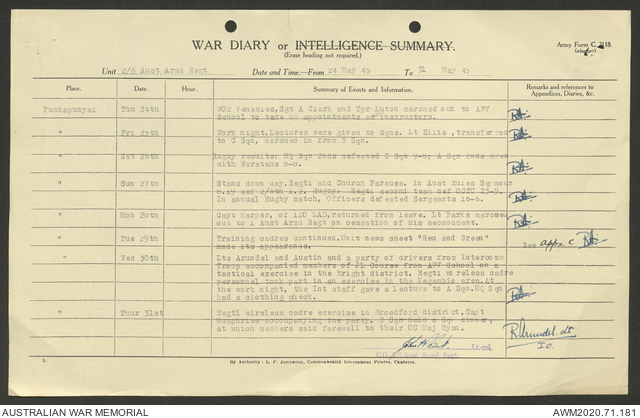 WAR DIARY or INTELLIGENCE SUMMARY.
(Erase heading not required.)
Army Form C. 2118.
Unit Aust Armd Regt Date and Time.—From 24 May 45 To 31 May 45
Place. Date. Hour. Summary of Events and Information. Remarks and references to Appendices, Diaries, &c.
Puckapunyal Thu 24th WO2 Venables, Sgt A Clark and Tpr Luton marched out to AFV
School to take up appointments as instructors.
" Fri 25th Work night. Lectures were given to Sqns. Lt Ellis, transferred
to C Sqn, marched in from B Sqn.
" Sat 26th Rugby results: HQ Sqn 2nds defeated C Sqn A Sqn 2nds drew
with Waratahs
" Sun 27th Stand down day. Regtl and Church Parades. In Aust Rules Seymour
def Rugby: Regtl second team def OCTU
In annual Rugby match, Officers defeated Sergeants
" Mon 28th Capt Harper, of 110 LAD, returned from leave. Lt Parks marched
out to 1 Aust Armd Regt on cessation of his secondment.
" Tue 29th Training cadres continued. Unit news sheet "Red and Green"
made its appearance. See appx C
" Wed 30th Lts Arundel and Austin and a party of drivers from Intercomm
Troop accompanied members of JL Course from AFV School on a
tactical exercise in the Bright district. Regtl wireless cadre
personnel took part in an exercise in the Nagambie area. At
the work night, the Int staff gave a lecture to A Sqn. HQ Sqn
had a clothing check.
" Thur 31st Regtl wireless cadre exercise in Broadford district, Capt
Humphries accompanying the party. C Sqn held a Sqn dinner,
at which members said farewell to their OC Maj Ryan.
R Arundel Lt
IO.
Lt-col.
C.O. Aust Armd Regt.
By Authority: L. F. Johnston, Commonwealth Government Printer, Canberra.
AUSTRALIAN WAR MEMORIAL
AWM2020.71.181